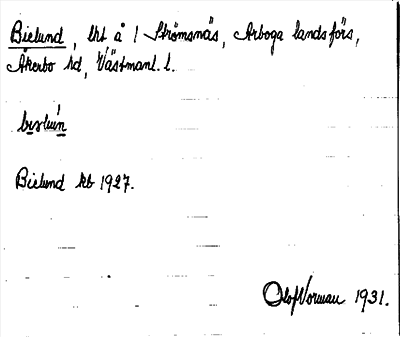 Bielund, lht å 1 Strömsnäs, Arboga landsförs,
Åkerbo hd, Västmanl. l.
Bielund kb 1927.
Olof Norman 1931.